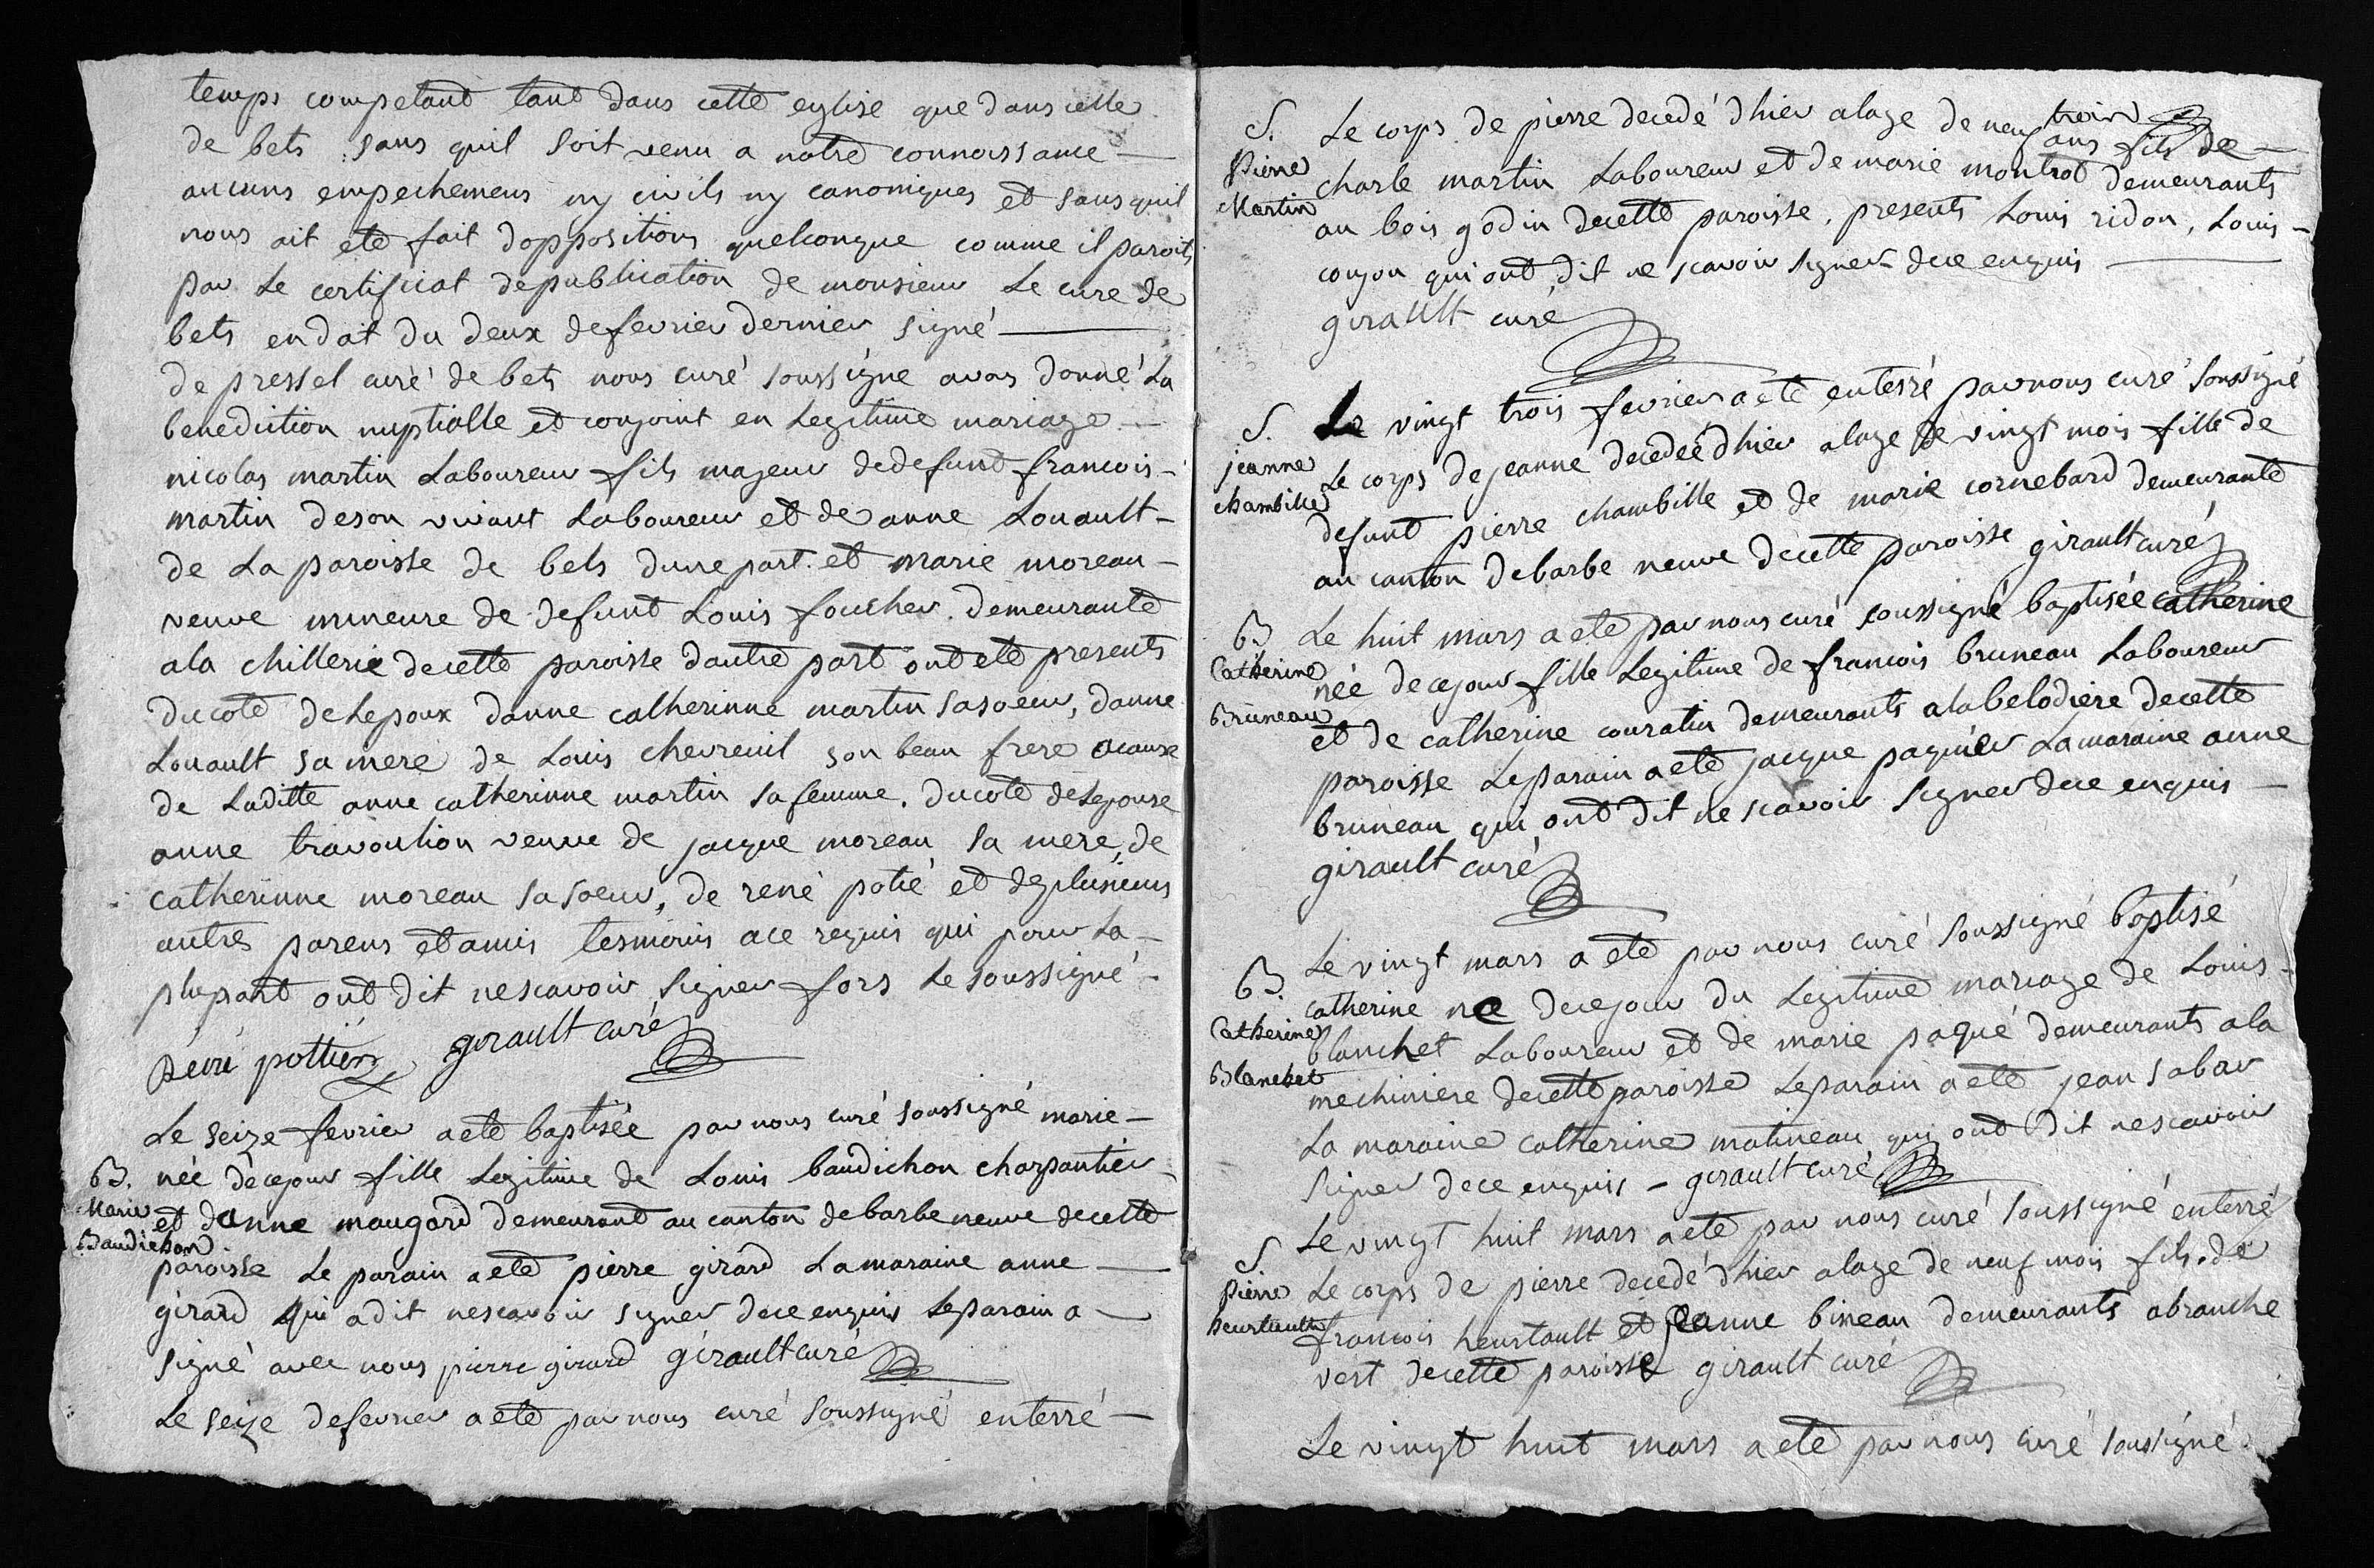 temps competant tant dans cette eglise que dans celle
de bets sans quil soit venu a notre connoissance
aucuns empechemens ny civils ny canoniques et sans quil
nous ait ete fait doppositions quelconque comme il paroit
par Le certificat de publication de monsieur Le cure de
bets en dat du deux de fevrier dernier signé
de pressel curé de bets nous curé soussigne avons donné La
benediction nuptialle et conjoint en Legitime mariage
nicolas martin Laboureur fils majeur de defunt francois
martin de son vivant Laboureur et de anne Louault
de La paroisse de bets dune part et marie moreau
veuve mineure de defunt Louis foucher demeurante
a la chillerie de cette paroisse dautre part ont ete presents
du coté de Lepoux danne catherinne martin sa soeur, danne
Louault sa mere de Louis chevreuil son beau frere acause
de Laditte anne catherinne martin sa femme. du coté de Lepouse
anne travoulion veuve de jacque moreau sa mere, de
catherinne moreau sa soeur, de rené potié et de plusieurs
autres parens et amis tesmoins a ce requis qui pour La
plupart ont dit ne scavoir signer fors Le soussigné
René pottier girault curé
Le seize fevrier a ete baptisée par nous curé soussigné marie
B. née de ce jour fille Legitime de Louis baudichon charpantier
Marie
et danne maugard demeurant au canton de barbe neuve de cette
Baudichon
paroisse Le parain a ete pierre girard La maraine anne
girard qui a dit ne scavoir signer de ce enquis Le parain a
signé avec nous pierre girard girault curé
Le seize de fevrier a ete par nous curé soussigné enterré
S. Le corps de pierre decedé dhier a lage de neuf ans fils de
trois
Pierre
Martin
charle martin Laboureur et de marie montrot demeurants
au bois godin de cette paroisse. presents Louis ridon, Louis
conjon qui ont dit ne scavoir signer de ce enquis
girault curé
S. Le vingt trois fevrier a ete enterré par nous curé soussigné
jeanne
chambille
Le corps de jeanne decedée dhier a lage de vingt mois fille de
defunt pierre chambille et de marie cornebard demeurante
au canton de barbe neuve de cette paroisse girault curé
B. Le huit mars a ete par nous curé soussigné baptisée catherine
Catherine
Bruneau
née de ce jour fille Legitime de francois bruneau Laboureur
et de catherine couratin demeurants a la belodiere de cette
paroisse Le parain a ete jacque paquier La maraine anne
bruneau qui ont dit ne scavoir signer de ce enquis
girault curé
Le vingt mars a ete par nous curé soussigné baptisé
B.
Catherine
Blanchet
catherine ne de ce jour du Legitime mariage de Louis
blanchet Laboureur et de marie paqué demeurants a la
mechiniere de cette paroisse Le parain a ete jean sabar
La maraine catherine matineau qui ont dit ne scavoir
signer de ce enquis - girault curé
Le vingt huit mars a ete par nous curé soussigné enterré
S.
Pierre
heurtault
Le corps de pierre decedé dhier a lage de neuf mois fils de
francois heurtault et jeanne bineau demeurants a branche
vert de cette paroisse girault curé
Le vingt huit mars a ete par nous curé soussigné